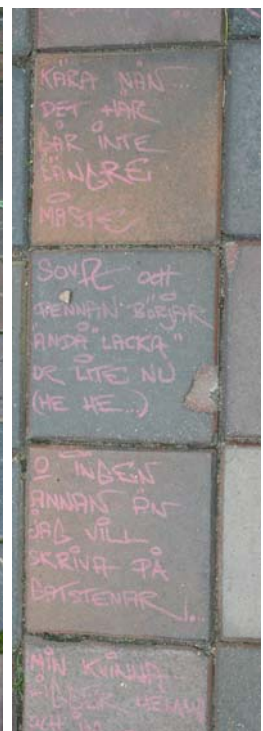 KÄRA NÅN...
DET HÄR
GÅR INTE
LÄNGRE
MÅSTE
SOVA och
PENNAN BÖRJAR
ÄNDÅ "LÄCKA"
UR LITE NU
(HE HE...)
O INGEN
ANNAN ÄN
JAG VILL
SKRIVA PÅ
GATSTENAR...
MIN KVINNA
och